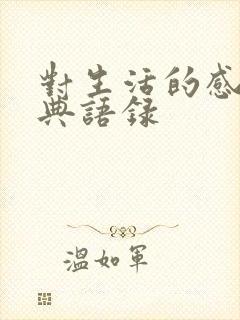 對生活的感
典語録
溫如軍